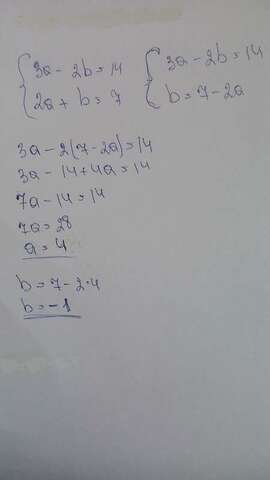 3a - 2b = 14
2a + b = 7
3a - 2b = 14
b = 7 - 2a
3a - 2(7 - 2a) = 14
3a - 14 + 4a = 14
7a - 14 = 14
7a = 28
a = 4
b = 7 - 2·4
b = -1